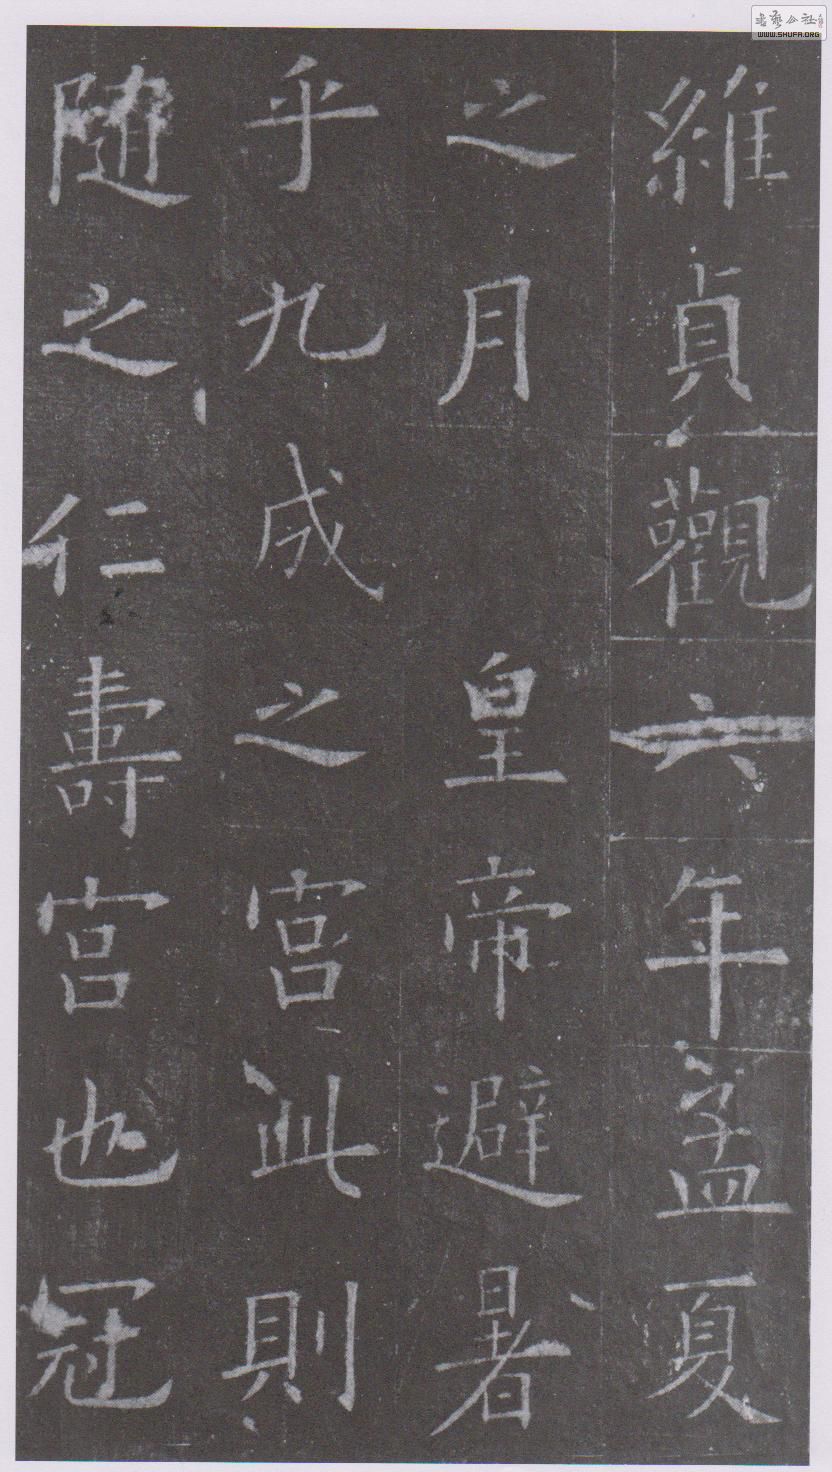 維貞觀六年孟夏
之月皇帝避暑
乎九成之宮此則
隨之仁壽宮也冠
WWW.SHUFA.ORG